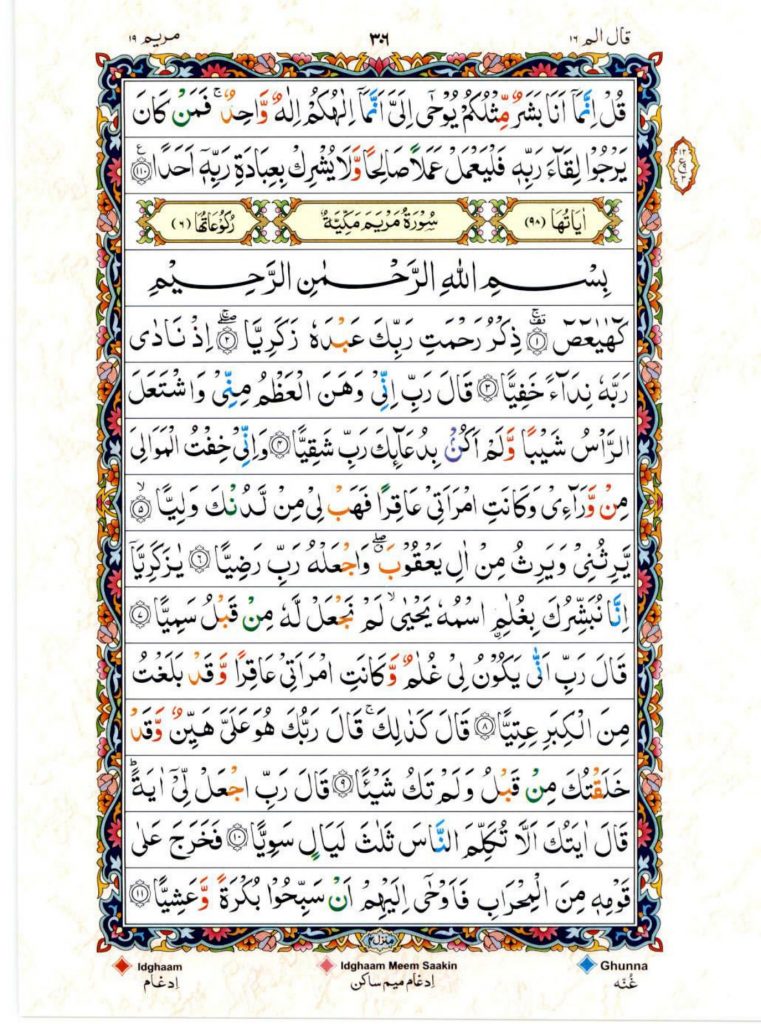 قال الم ١٦
٣٠٦
مريم ١٩
قُلْ اِنَّمَاۤ اَنَا بَشَرٌ مِّثْلُكُمْ يُوْحٰۤى اِلَىَّ اَنَّمَاۤ اِلٰهُكُمْ اِلٰهٌ وَّاحِدٌ ۚ فَمَنْ كَانَ
يَرْجُوْا لِقَآءَ رَبِّهٖ فَلْيَعْمَلْ عَمَلًا صَالِحًا وَّلَا يُشْرِكْ بِعِبَادَةِ رَبِّهٖۤ اَحَدًا ﴿١١٠﴾
اٰيَاتُهَا (٩٨) سُوْرَةُ مَرْيَمَ مَكِّيَّةٌ رُكُوْعَاتُهَا (٦)
بِسْمِ اللهِ الرَّحْمٰنِ الرَّحِيْمِ
كٓهٰيٰعٓصٓ ﴿١﴾ ذِكْرُ رَحْمَتِ رَبِّكَ عَبْدَهٗ زَكَرِيَّا ﴿٢﴾ اِذْ نَادٰى
رَبَّهٗ نِدَآءً خَفِيًّا ﴿٣﴾ قَالَ رَبِّ اِنِّىْ وَهَنَ الْعَظْمُ مِنِّىْ وَاشْتَعَلَ
الرَّاْسُ شَيْبًا وَّلَمْ اَكُنْۢ بِدُعَآئِكَ رَبِّ شَقِيًّا ﴿٤﴾ وَاِنِّىْ خِفْتُ الْمَوَالِىَ
مِنْ وَّرَآءِىْ وَكَانَتِ امْرَاَتِىْ عَاقِرًا فَهَبْ لِىْ مِنْ لَّدُنْكَ وَلِيًّا ۙ﴿٥﴾
يَّرِثُنِىْ وَيَرِثُ مِنْ اٰلِ يَعْقُوْبَ ۖ وَاجْعَلْهُ رَبِّ رَضِيًّا ﴿٦﴾ يٰزَكَرِيَّاۤ
اِنَّا نُبَشِّرُكَ بِغُلٰمِ اۨسْمُهٗ يَحْيٰى ۙ لَمْ نَجْعَلْ لَّهٗ مِنْ قَبْلُ سَمِيًّا ﴿٧﴾
قَالَ رَبِّ اَنّٰى يَكُوْنُ لِىْ غُلٰمٌ وَّكَانَتِ امْرَاَتِىْ عَاقِرًا وَّقَدْ بَلَغْتُ
مِنَ الْكِبَرِ عِتِيًّا ﴿٨﴾ قَالَ كَذٰلِكَ ۚ قَالَ رَبُّكَ هُوَ عَلَىَّ هَيِّنٌ وَّقَدْ
خَلَقْتُكَ مِنْ قَبْلُ وَلَمْ تَكُ شَيْـًٔا ﴿٩﴾ قَالَ رَبِّ اجْعَلْ لِّىْۤ اٰيَةً ؕ
قَالَ اٰيَتُكَ اَلَّا تُكَلِّمَ النَّاسَ ثَلٰثَ لَيَالٍ سَوِيًّا ﴿١٠﴾ فَخَرَجَ عَلٰى
قَوْمِهٖ مِنَ الْمِحْرَابِ فَاَوْحٰۤى اِلَيْهِمْ اَنْ سَبِّحُوْا بُكْرَةً وَّعَشِيًّا ﴿١١﴾
منزل ٤
Idghaam
Idghaam Meem Saakin
Ghunna
اِدغام
اِدغام میم ساکن
غُنّه